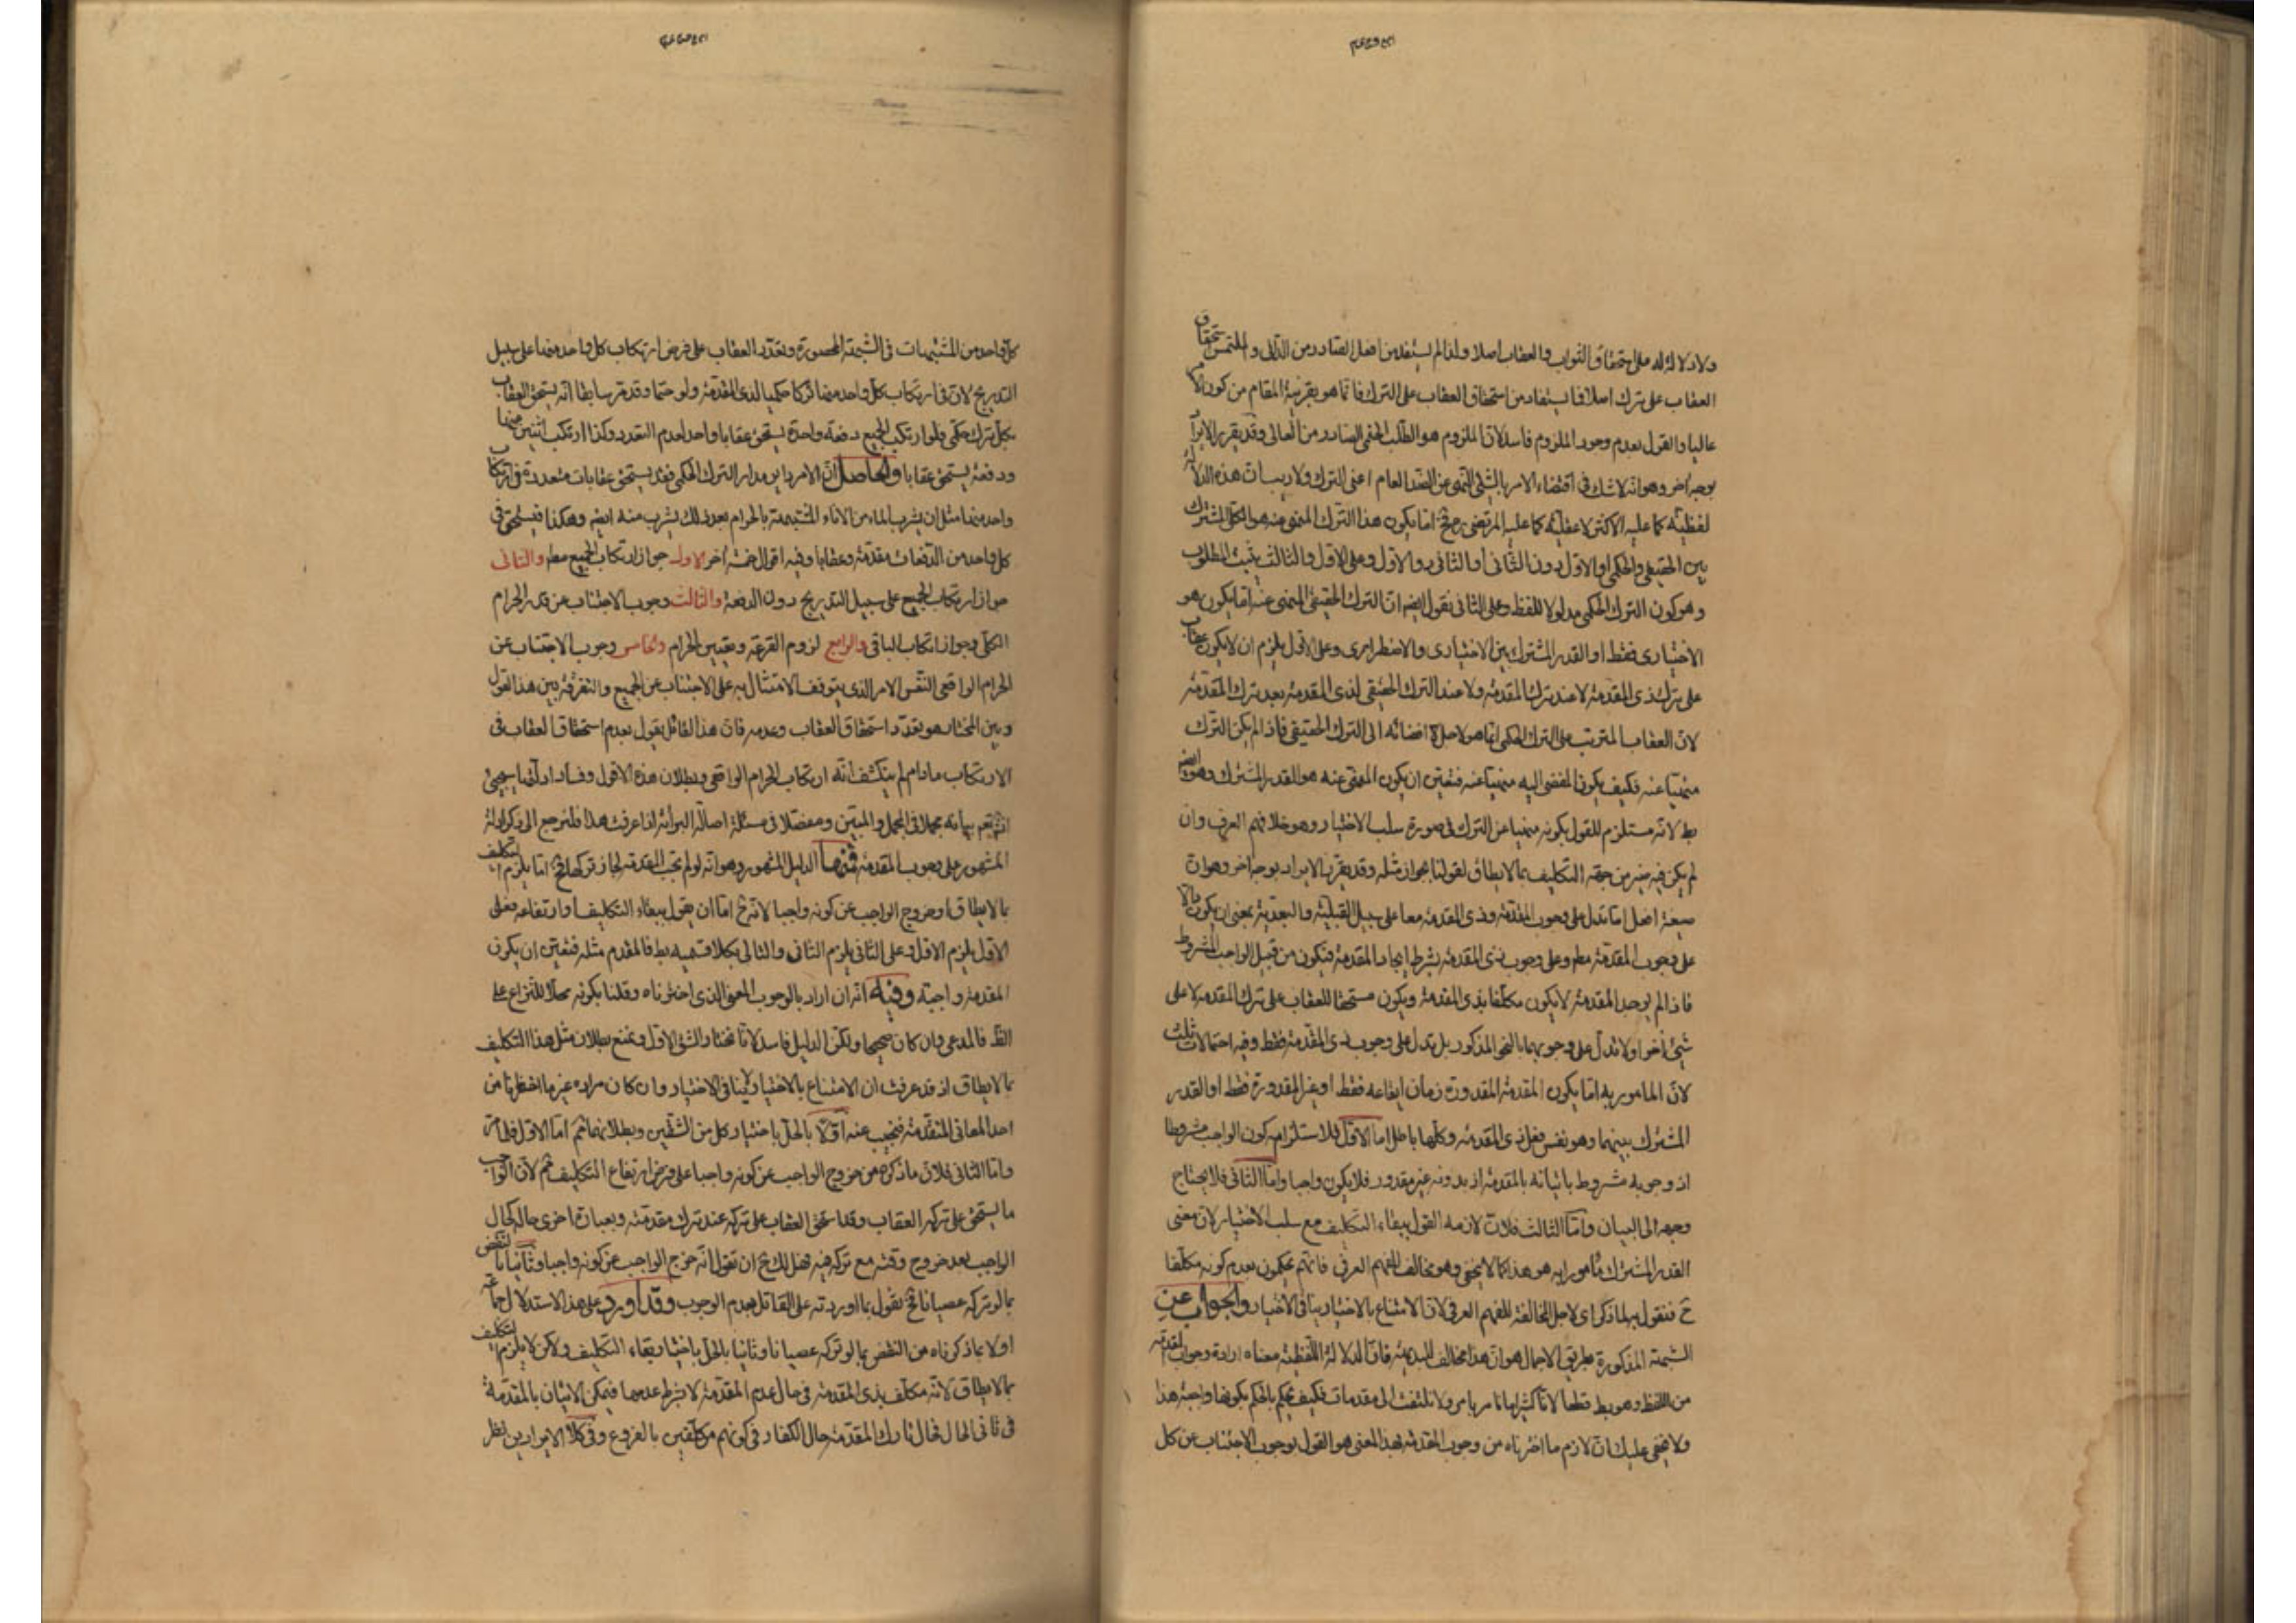 ولا دلالة له على استحقاق الثواب والعقاب اصلا ولذا لم يستفد من افعل الصادر من الدانى والملتمس استحقاق
العقاب على ترك اصلا فما يستفاد من استحقاق العقاب على الترك فانما هو بقرينة المقام من كون الآمر
عاليا والقول بعدم وجود الملزوم فاسد لان الملزوم هو الطلب الحتمى الصادر من العالى وقد يقرر الايراد
بوجه آخر وهو انه لا شك فى اقتضاء الامر بالشئ النهى عن الضد العام اعنى الترك ولا ريب ان هذه الدلالة
لفظية كما عليه الاكثر لا عقلية كما عليه المرتضى رح فح اما يكون هذا الترك المنهى عنه هو الكلى المشترك
بين الحقيقى والحكمى او الاول دون الثانى او الثانى دون الاول وعلى الاول والثالث يثبت المطلوب
وهو كون الترك الحكمى مدلولا للفظ وعلى الثانى نقول ايضا ان الترك الحقيقى المنهى عنه اما يكون هو
الاختيارى فقط او القدر المشترك بين الاختيارى والاضطرارى وعلى الاول يلزم ان لا يكون عقاب
على ترك ذى المقدمة لا عند ترك المقدمة ولا عند الترك الحقيقى لذى المقدمة بعد ترك المقدمة
لان العقاب المترتب على الترك الحكمى انما هو لاجل افضائه الى الترك الحقيقى فاذا لم يكن الترك
منهيا عنه فكيف يكون المفضى اليه منهيا عنه فتعين ان يكون المنهى عنه هو القدر المشترك وهو ايضا
بط لانه مستلزم للقول بكونه منهيا عن الترك فى صورة سلب الاختيار وهو خلاف فهم العرف وان
لم يكن فيه ضير من جهة التكليف بما لا يطاق لقولنا بجواز مثله وقد يقرر الايراد بوجه آخر وهو ان
صيغة افعل اما تدل على وجوب المقدمة وذى المقدمة معا على سبيل القبلية والبعدية بمعنى ان يكون دالا
على وجوب المقدمة مطلقا وعلى وجوب ذى المقدمة بشرط ايجاد المقدمة فتكون من قبيل الواجب المشروط
فاذا لم يوجد المقدمة لا يكون مكلفا بذى المقدمة ويكون مستحقا للعقاب على ترك المقدمة لا على
شئ آخر او لا تدل على وجوبهما بالنحو المذكور بل تدل على وجوب ذى المقدمة فقط وفيه احتمالات ثلث
لان المامور به اما يكون المقدمة المقدورة زمان ايقاعه فقط او غير المقدورة فقط او القدر
المشترك بينهما وهو نفس فعل ذى المقدمة وكلها باطل اما الاول فلاستلزامه كون الواجب مشروطا
اذ وجوبه مشروط باتيانه بالمقدمة اذ بدونه غير مقدور فلا يكون واجبا واما الثانى فلا يحتاج
وجهه الى البيان واما الثالث فلان لازمه القول ببقاء التكليف مع سلب الاختيار لان معنى
القدر المشترك مامورا به هو هذا كما لا يخفى وهو مخالف للفهم العرفى فانهم يحكمون بعدم كونه مكلفا
ح فنقول به لما ذكر اى لاجل المخالفة للفهم العرفى لان الامتناع بالاختيار ينافى الاختيار والجواب عن
الشبهة المذكورة بطريق الاجمال هو ان هذا مخالف للبديهة فان الدلالة اللفظية معناه ارادة وجوب المقدمة
من اللفظ وهو بط قطعا لانا كثيرا ما نامر بامر ولا نلتفت الى مقدمات فكيف يحكم بالحكم بكونها واجبة هذا
ولا يخفى عليك ان لازم ما اخترناه من وجوب المقدمة بهذا المعنى هو القول بوجوب الاجتناب عن كل
كل واحد من المشتبهات فى الشبهة المحصورة وتعدد العقاب على فرض ارتكاب كل واحد منها على سبيل
التدريج لان فى ارتكاب كل واحد منها تركا حكميا لذى المقدمة ولو حتما وقد مر سابقا انه يستحق العقاب
بكل ترك حكمى ولو ارتكب الجميع دفعة واحدة يستحق عقابا واحدا لعدم التعدد وكذا ارتكب اثنين منها
ودفعة يستحق عقابا والحاصل ان الامر داير مدار الترك الحكمى فقد يستحق عقابات متعددة فى ارتكاب
واحد منها مثل ان يشرب الماء من الاناء المشتبهة بالحرام بعد ذلك يشرب منه ايضا وهكذا فيستحق فى
كل واحد من الدفعات مقدمة وعقابا وفيه اقوال خمسة اخر الاول جواز ارتكاب الجميع مطلقا والثانى
جواز ارتكاب الجميع على سبيل التدريج دون الدفعة والثالث وجوب الاجتناب عن قدر الحرام
الكلى وجواز ارتكاب الباقى والرابع لزوم القرعة وتعيين الحرام والخامس وجوب الاجتناب عن
الحرام الواقعى النفس الامر الذى يتوقف الامتثال به على الاجتناب عن الجميع والتفرقة بين هذا القول
وبين المختار هو تعدد استحقاق العقاب وعدمه فان هذا القائل يقول بعدم استحقاق العقاب فى
الارتكاب ما دام لم ينكشف انه ارتكاب الحرام الواقعى وبطلان هذه الاقوال وفساد ادلتها سيجئ
انشاء الله تعم بيانه مجملا فى المجمل والمبين ومفصلا فى مسئلة اصالة البرائة اذا عرفت هذا فلنرجع الى ذكر ادلة
المشهور على وجوب المقدمة فمنها الدليل المشهور وهو انه لو لم تجب المقدمة لجاز تركها فح اما يلزم التكليف
بما لا يطاق او خروج الواجب عن كونه واجبا لانه ح اما ان يقول ببقاء التكليف او ارتفاعه فعلى
الاول يلزم الاول وعلى الثانى يلزم الثانى والتالى بكلا قسميه بط فالمقدم مثله فتعين ان يكون
المقدمة واجبة وفيه انه ان اراد بالوجوب المعنى الذى اخترناه وقلنا بكونه محلا للنزاع على
الظ فالمدعى وان كان صحيحا ولكن الدليل فاسد لانا نختار الشق الاول ونمنع بطلان مثل هذا التكليف
بما لا يطاق اذ قد عرفت ان الامتناع بالاختيار لا ينافى الاختيار وان كان مراده غير ما اخترنا من
احد المعانى المتقدمة فنجيب عنه اولا بالحل باختيار كل من الشقين وبطلانهما ثم اما الاول فلما مر
واما الثانى فلان ما ذكره من خروج الواجب عن كونه واجبا على فرض ارتفاع التكليف ثم لان الواجب
ما يستحق على تركه العقاب وقد استحق العقاب على تركه عند ترك مقدمته وبعبارة اخرى حاله كحال
الواجب بعد خروج وقته مع تركه فيه فهل لك ح ان تقول انه خرج الواجب عن كونه واجبا وثانيا بالنقض
بما لو تركه عصيانا فح نقول بما اوردته على القائل بعدم الوجوب وقد اورد على هذا الاستدلال جماعة
اولا بما ذكرناه من النقض بما لو تركه عصيانا وثانيا بالحل باختيار بقاء التكليف ولكن لا يلزم التكليف
بما لا يطاق لانه مكلف بذى المقدمة فى حال عدم المقدمة لا بشرط عدمها فيمكن الاتيان بالمقدمة
فى ثانى الحال فحال تارك المقدمة حال الكفار فى كونهم مكلفين بالفروع وفى كلا الايرادين نظر